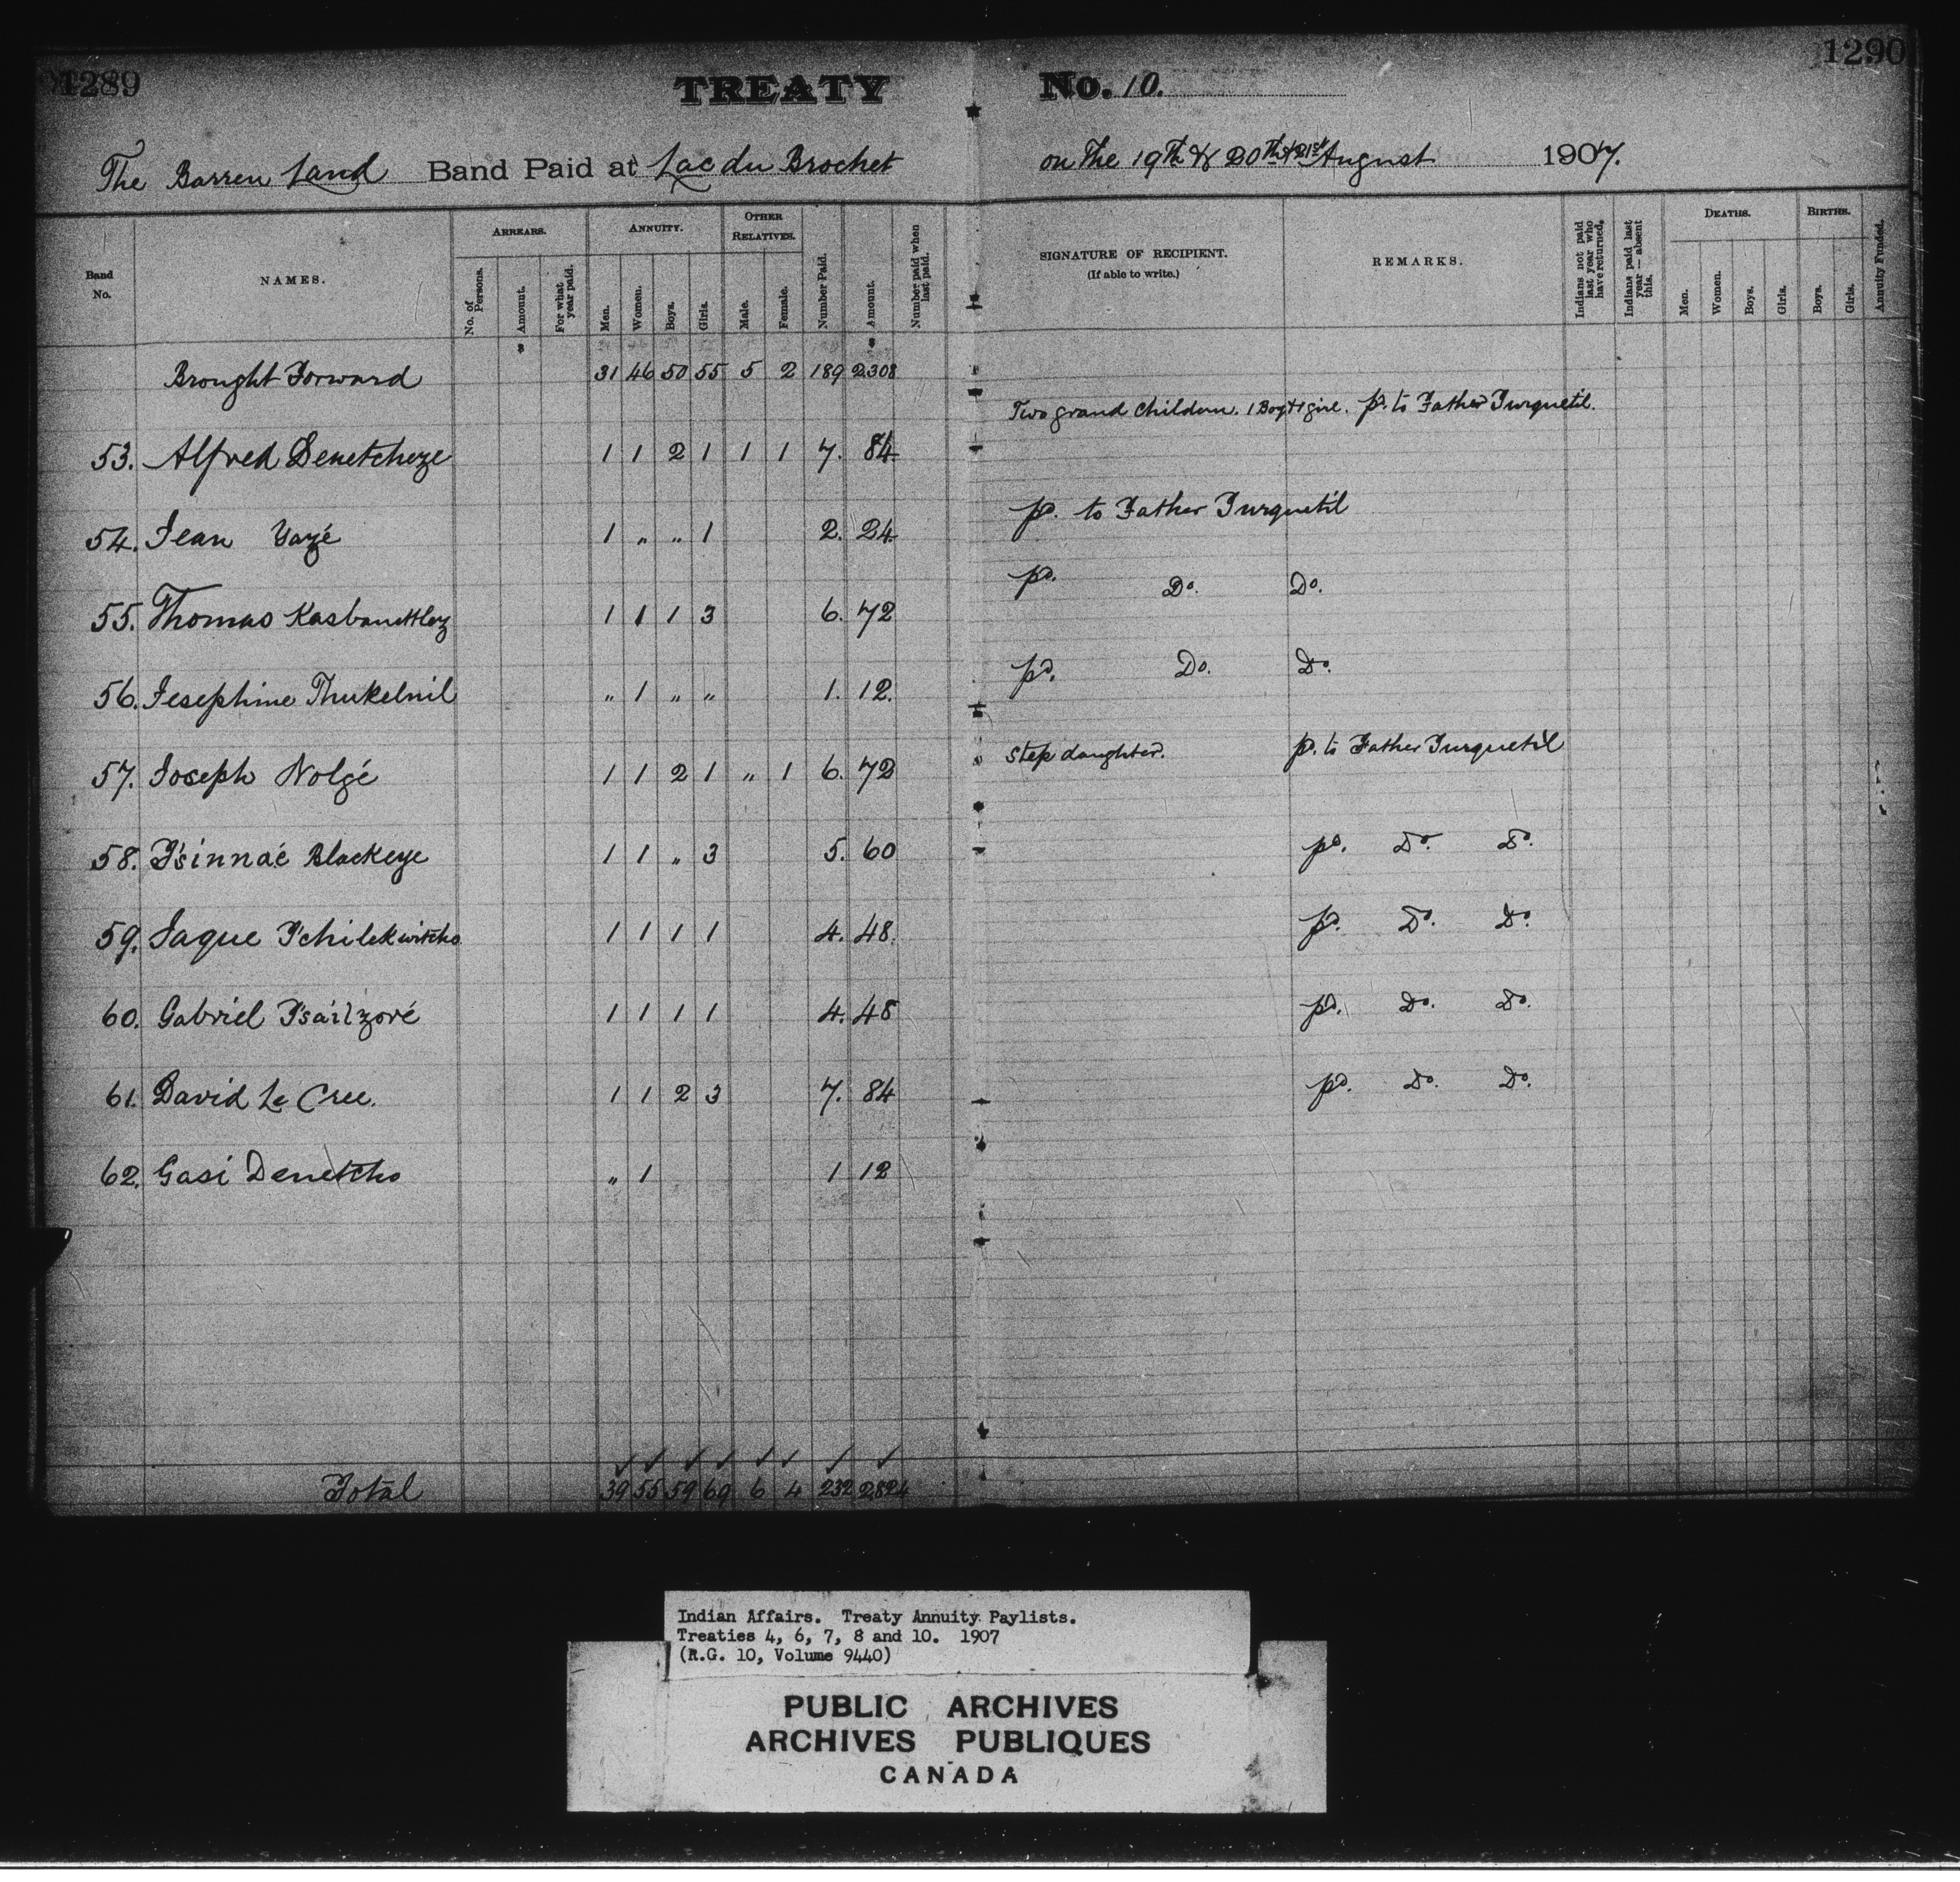 1289
TREATY No. 10.
1290
The Barren Land Band Paid at Lac du Brochet on the 19th & 20th & 21st August 1907.
Band No. NAMES. ARREARS. No. of Persons. Amount. For what year paid. ANNUITY. Men. Women. Boys. Girls. OTHER RELATIVES. Male. Female. Number Paid. Amount. Number paid when last paid. SIGNATURE OF RECIPIENT. (If able to write.) REMARKS. Indians not paid last year who have returned. Indians paid last year — absent this. DEATHS. Men. Women. Boys. Girls. BIRTHS. Boys. Girls. Annuity Funded.
Brought Forward 31 46 50 55 5 2 189 2308
Two grand children. 1 Boy & 1 girl. pd. to Father Turquetil.
53. Alfred Denetcheze 1 1 2 1 1 1 7. 84
54. Jean Yazé 1 " " 1 2. 24 pd. to Father Turquetil
55. Thomas 1 1 1 3 6. 72 pd. Do. Do.
56. Josephine Thukelnil " 1 " " 1. 12. pd. Do. Do.
57. Joseph Nolgé 1 1 2 1 " 1 6. 72 Step daughter. pd. to Father Turquetil
58. T'sinnaé Blackeye 1 1 " 3 5. 60 pd. Do. Do.
59. Jaque T'chilekwitcho 1 1 1 1 4. 48. pd. Do. Do.
60. Gabriel T'sailzoré 1 1 1 1 4. 48 pd. Do. Do.
61. David Le Cree. 1 1 2 3 7. 84 pd. Do. Do.
62. Gasi Denetcho " 1 1 12
Total 39 55 59 69 6 4 232 2824
Indian Affairs. Treaty Annuity Paylists.
Treaties 4, 6, 7, 8 and 10. 1907
(R.G. 10, Volume 9440)
PUBLIC ARCHIVES
ARCHIVES PUBLIQUES
CANADA